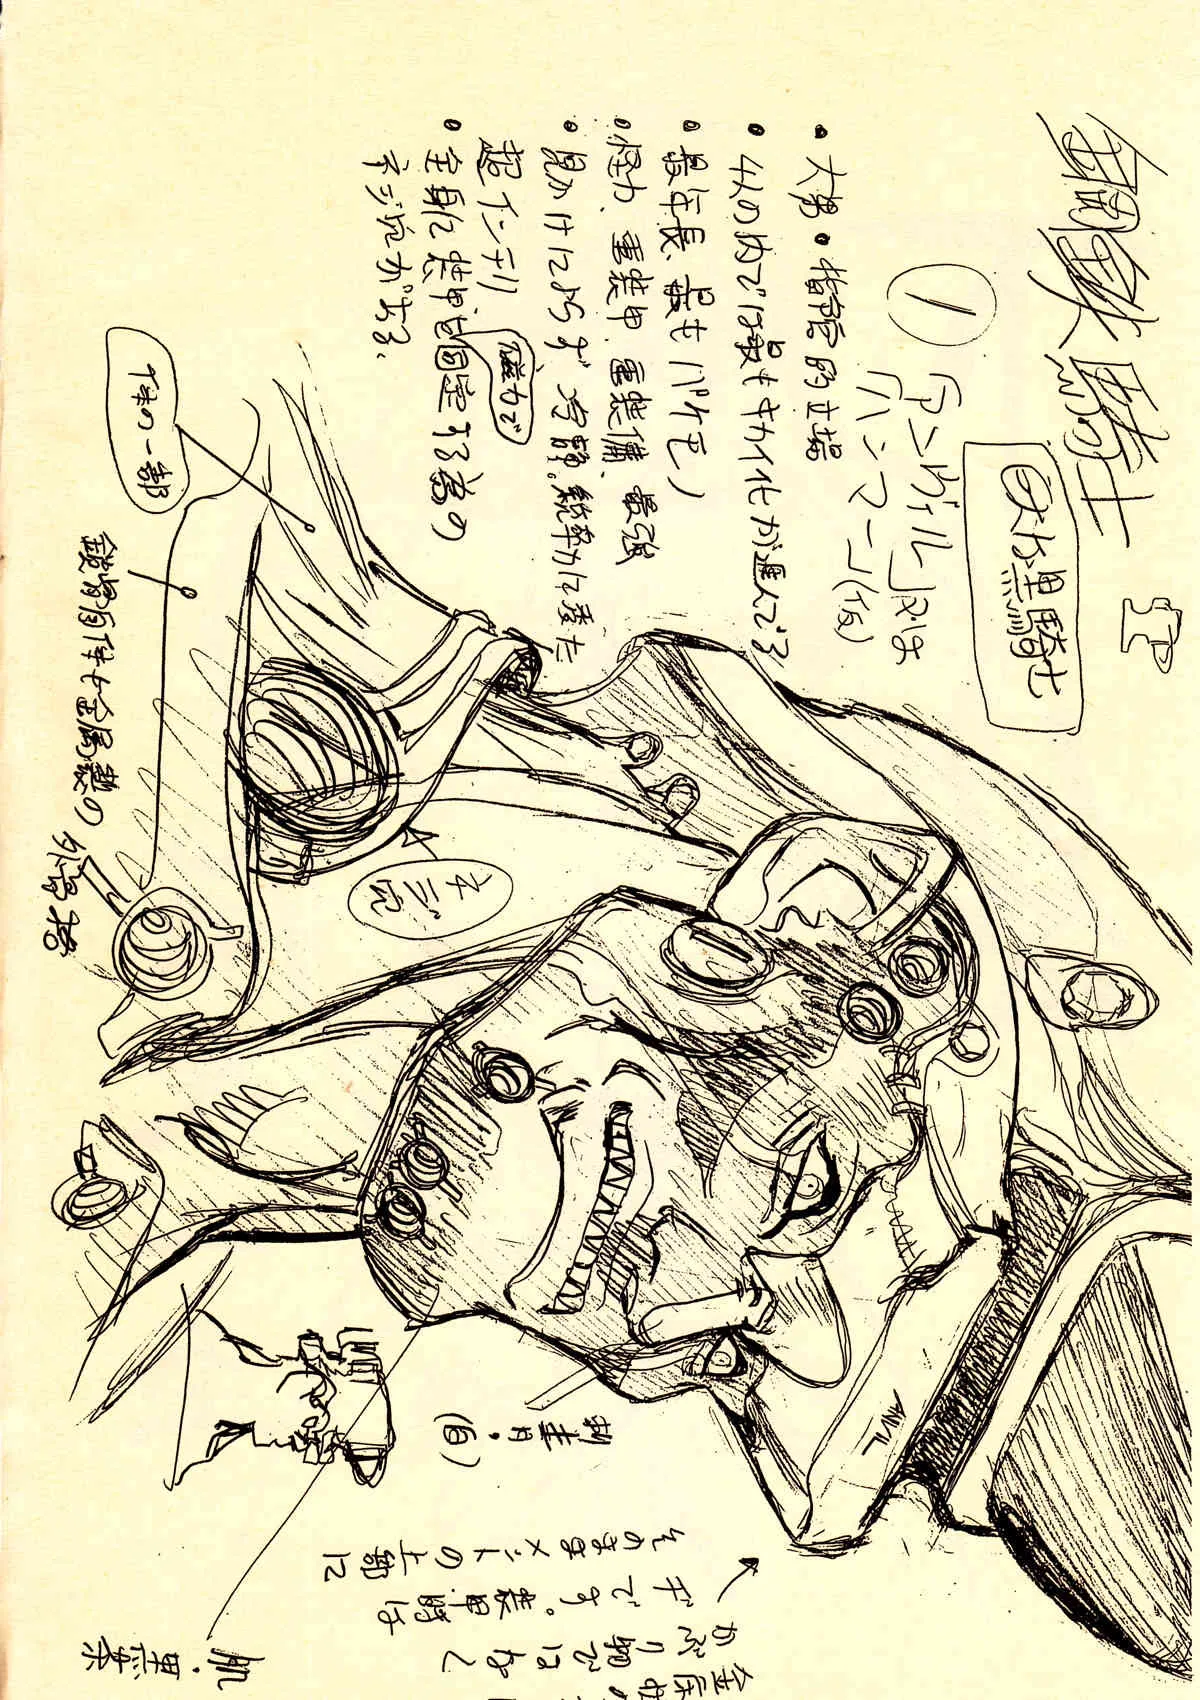 鋼鉄騎士
鉄黒騎士
①
「アンヴィル」又は
「ハンマー」(仮)
• 大男 • 指揮官的立場
• 4人の内では最もキカイ化が進んでる
• 最年長、最もパイモノ
• 怪力、重装甲、重装備、最強
• 見かけによらず冷静。統率力に秀た
超インテリ
• 全身に装甲を固定する為の
磁力で
ネジ穴がある、
体の一部
鎖骨自体も金属製の
外骨格
ネジ穴
ANVIL
(白)
肌・黒茶
金属性の
かぶり物ではなく
デです。装甲時は
そのままメットの上部に